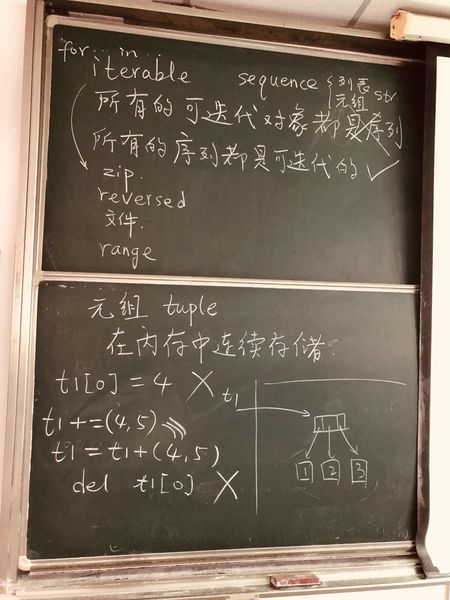 for … in …
iterable sequence { 列表 元组 str
所有的可迭代对象都是序列
所有的序列都是可迭代的 ✓
zip.
reversed
文件.
range
元组 tuple
在内存中连续存储.
t1[0] = 4 X
t1 += (4,5)
t1 = t1 + (4,5)
del t1[0] X
t1
1 2 3